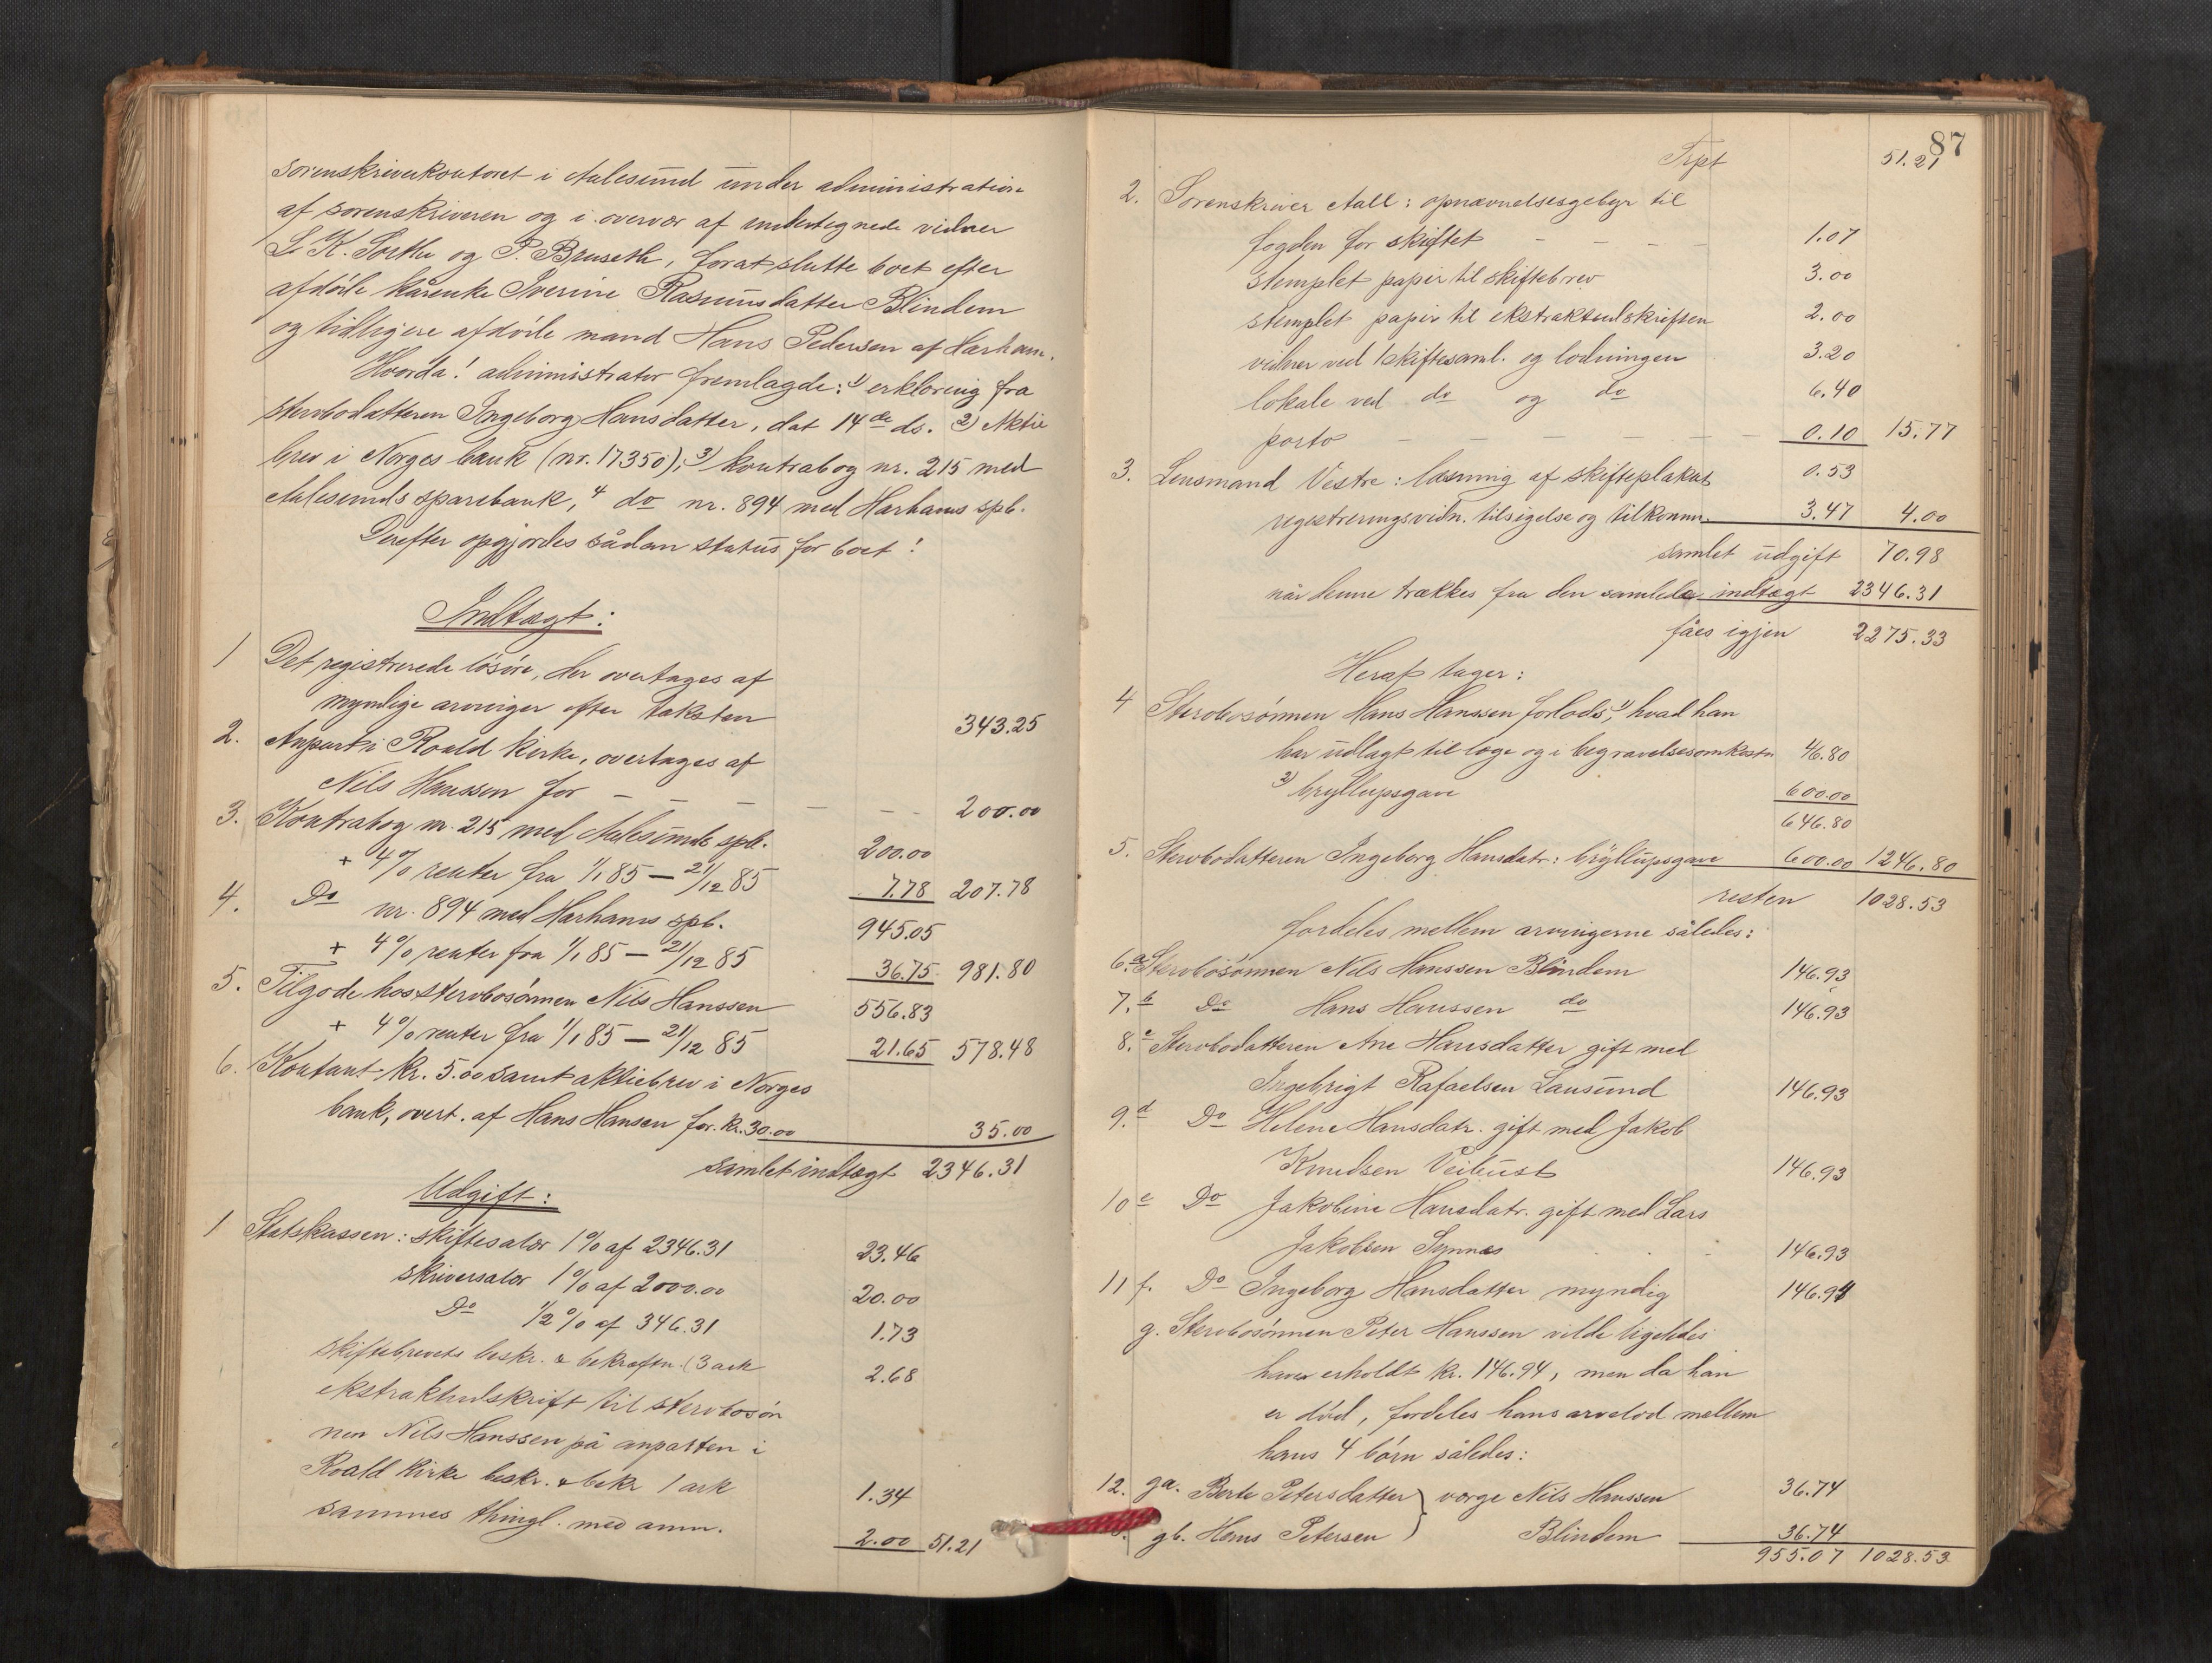 sorenskriverkontoret i Aalesund under administration
af sorenskriveren og i overvær af undertegnede vidner
L. K. Sorthe og P. Bruseth, forat slutte boet efter
afdöde kårenke Iverine Rasmusdatter Blindem
og tidligere afdöde mand Hans Pedersen af Harham.
Hvorda! administrator fremlagde: 1) erklæring fra
stervbodatteren Ingeborg Hansdatter, dat 14de ds. 2) Aktie
brev i Norges bank (nr. 17350), 3) kontrabog nr. 215 med
Aalesunds sparebank, 4 do nr. 894 med Harhams spb.
Derefter opgjordes sådan status for boet!
Indtægt:
1 Det registrerede lösöre, der overtages af
myndige arvinger efter taksten 343.25
2. Anpart i Roald kirke, overtages af
Nils Hanssen for – – – – – 200.00
3. Kontrabog nr. 215 med Aalesunds spb. 200.00
+ 4% renter fra 1/1 85 – 21/12 85 7.78 207.78
4. Do nr. 894 med Harhams spb. 945.05
+ 4% renter fra 1/1 85 – 21/12 85 36.75 981.80
5. Tilgode hos stervbosönnen Nils Hanssen 556.83
+ 4% renter fra 1/1 85 – 21/12 85 21.65 578.48
6. Kontant kr. 5.00 samt aktiebrev i Norges
bank, overt. af Hans Hansen for kr. 30.00 35.00
samlet indtægt 2346.31
Udgift:
1 Statskassen: skiftesalær 1% af 2346.31 23.46
skriversalær 1% af 2000.00 20.00
Do 1/2% af 346.31 1.73
skiftebrevets beskr. & bekræftn. (3 ark 2.68
ekstraktudskrift til stervbosön
nen Nils Hanssen på anparten i
Roald kirke beskr. & bekr 1 ark 1.34
sammes thingl. med anm. 2.00 51.21
87
Trpt 51.21
2. Sorenskriver Aall: opnævnelsesgebyr til
fogden for skiftet – – – – 1.07
stemplet papir til skiftebrev 3.00
stemplet papir til ekstraktudskriften 2.00
vidner ved 1 skiftesaml. og lodningen 3.20
lokale ved do og do 6.40
porto – – – – – – 0.10 15.77
3. Lensmand Vestre: læsning af skifteplakat 0.53
registreringsvidn. tilsigelse og tilkomm. 3.47 4.00
samlet udgift 70.98
når denne trækkes fra den samlede indtægt 2346.31
fåes igjen 2275.33
Heraf tager:
4 Stervbosönnen Hans Hanssen forlods, 1) hvad han
har udlagt til læge og i begravelsesomkostn 46.80
2) bryllupsgave 600.00
646.80
5. Stervbodatteren Ingeborg Hansdatr: bryllupsgave 600.00 1246.80
resten 1028.53
fordeles mellem arvingerne således:
6. a Stervbosönnen Nils Hanssen Blindem 146.93
7. b Do Hans Hanssen do 146.93
8. c Stervbodatteren Ane Hansdatter gift med
Ingebrigt Rafaelsen Lausund 146.93
9. d Do Helene Hansdatr. gift med Jakob
Knudsen Veibust 146.93
10 e Do Jakobine Hansdatr. gift med Lars
Jakobsen Synnæs 146.93
11 f. Do Ingeborg Hansdatter myndig 146.94
g. Stervbosönnen Peter Hanssen vilde ligeledes
have erholdt kr. 146.94, men da han
er död, fordeles hans arvelod mellem
hans 4 börn således:
12. ga. Berte Petersdatter } værge Nils Hanssen 36.74
gb. Hans Petersen } Blindem 36.74
955.07 1028.53